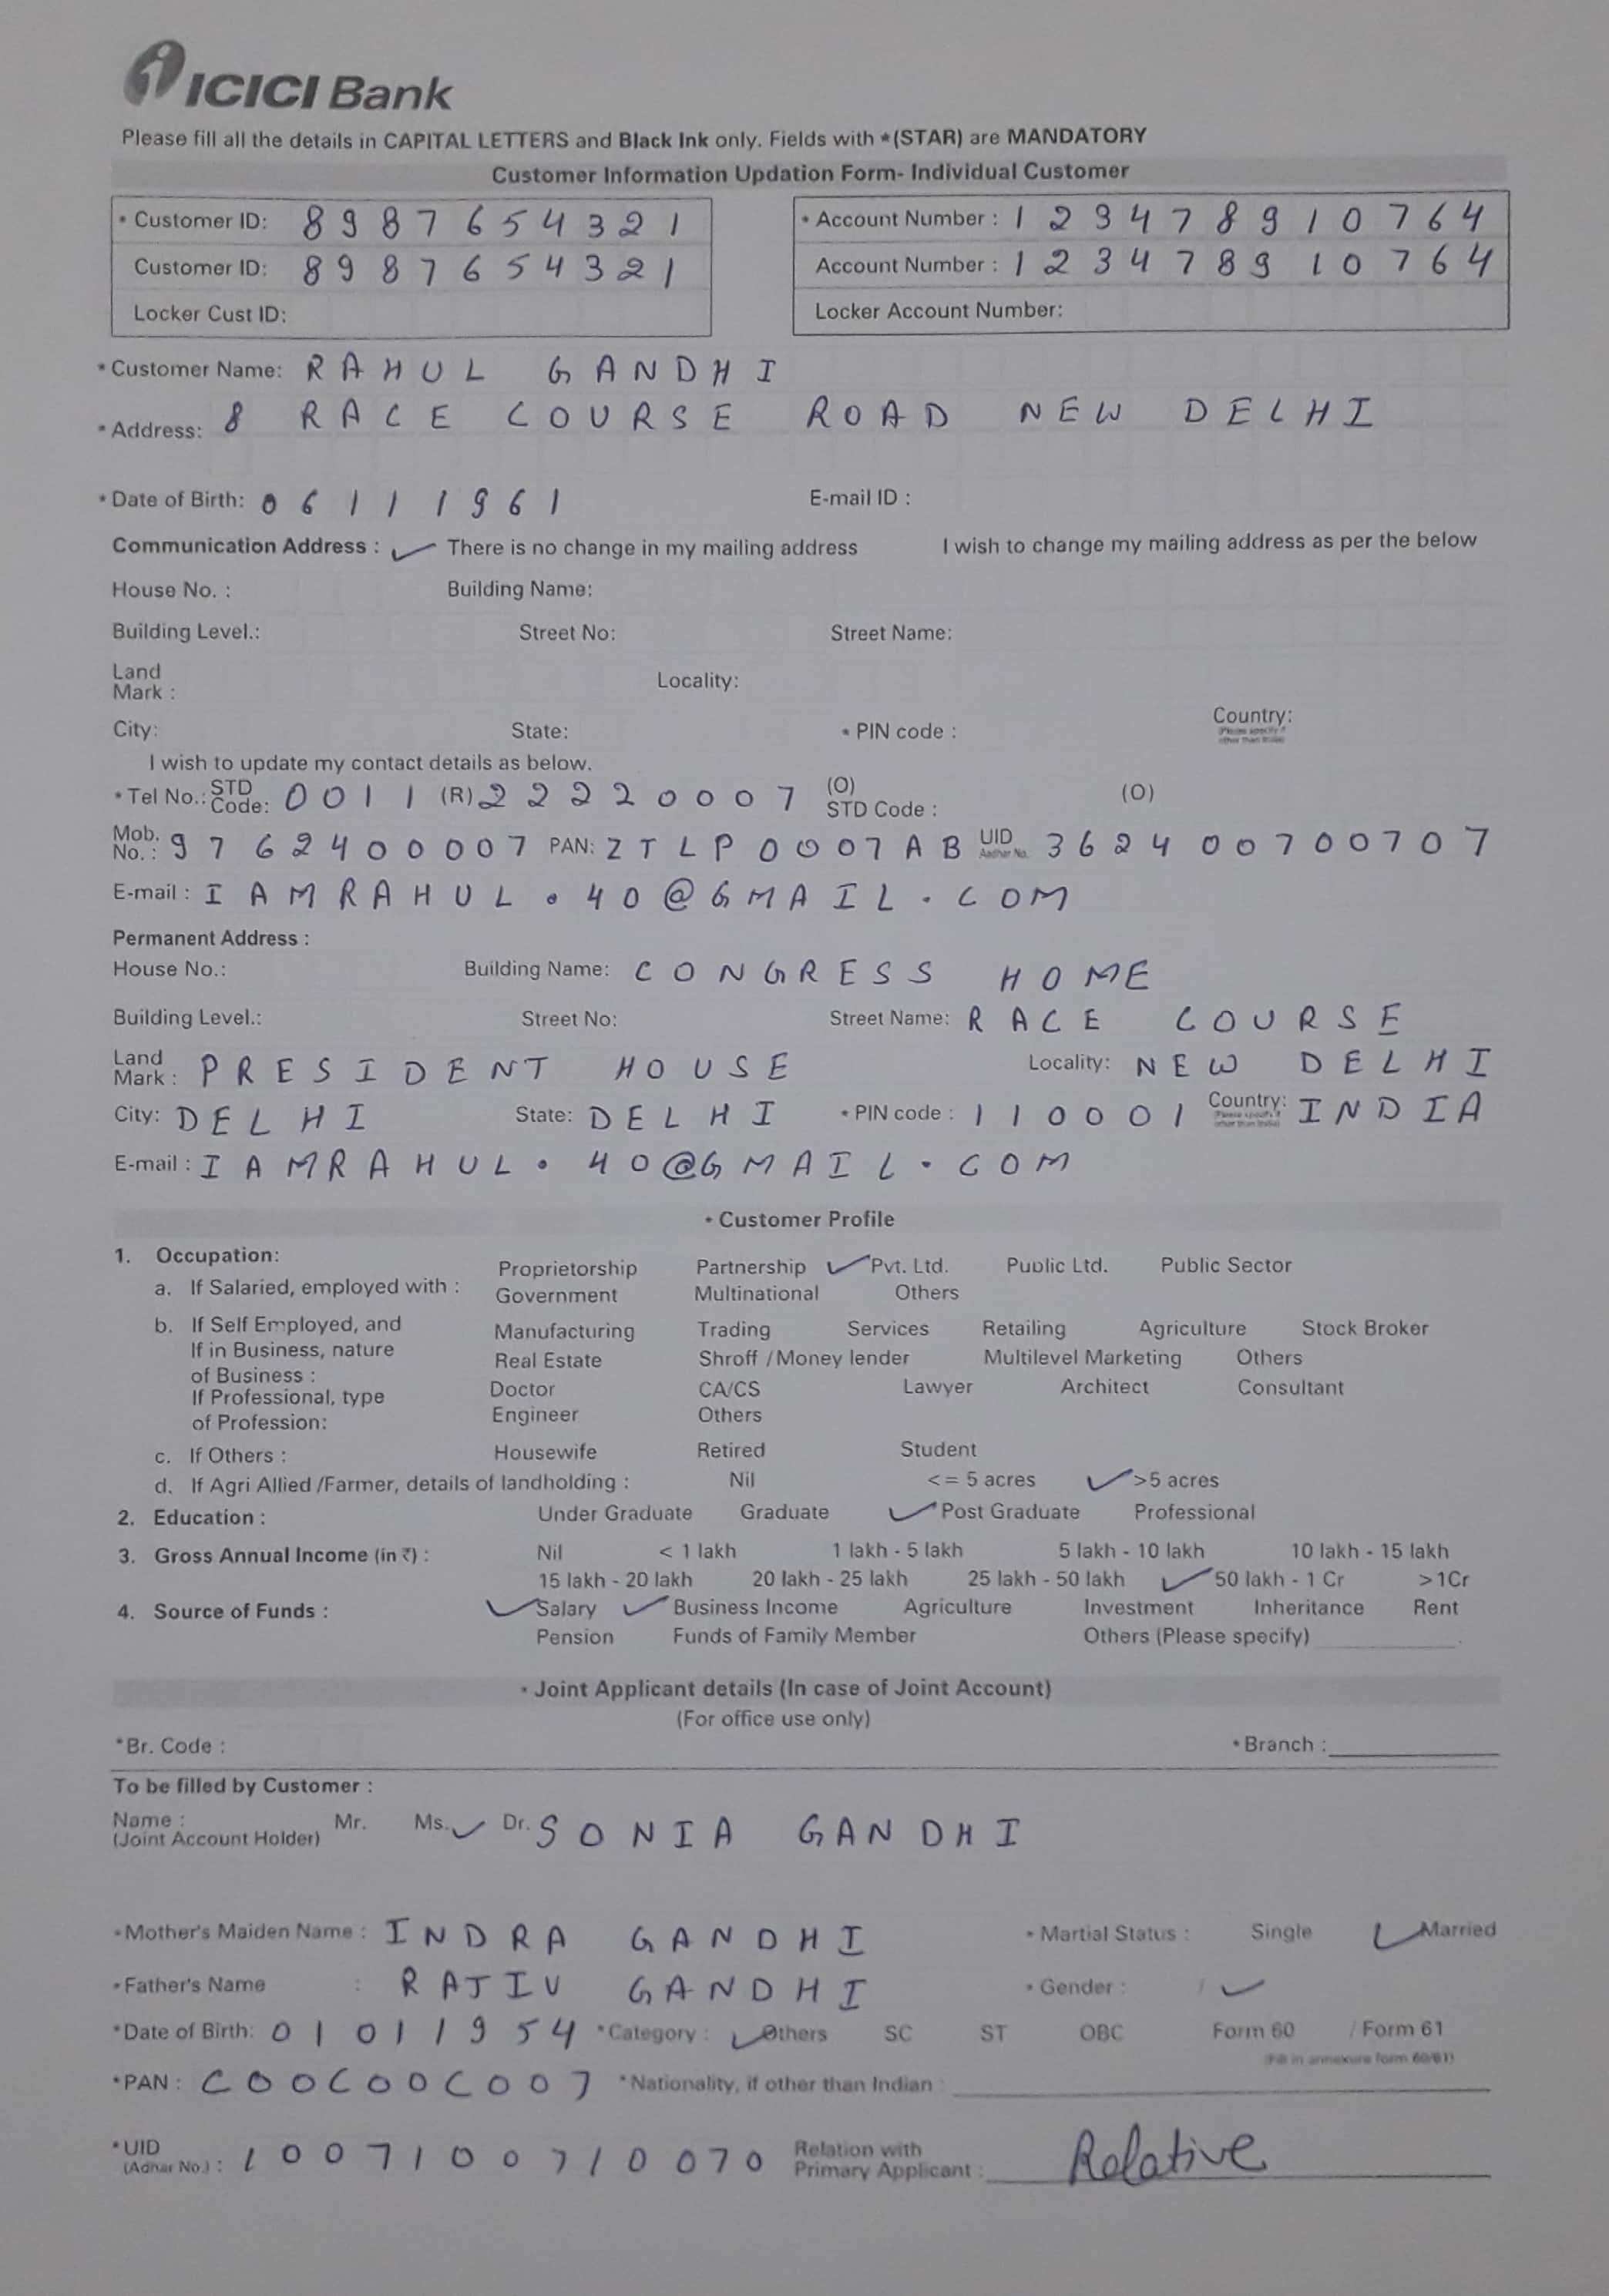 ICICI Bank
Please fill all the details in CAPITAL LETTERS and Black Ink only. Fields with *(STAR) are MANDATORY
Customer Information Updation Form- Individual Customer
* Customer ID: 8987654321 * Account Number : 123478910764
Customer ID: 8987654321 Account Number : 123478910764
Locker Cust ID: Locker Account Number:
* Customer Name: RAHUL GANDHI
* Address: 8 RACE COURSE ROAD NEW DELHI
* Date of Birth: 06111961 E-mail ID :
Communication Address : ✓ There is no change in my mailing address I wish to change my mailing address as per the below
House No. : Building Name:
Building Level.: Street No: Street Name:
Land Mark : Locality:
City: State: * PIN code : Country: (Please specify if other than India)
I wish to update my contact details as below.
* Tel No.: STD Code: 0011 (R) 22220007 (O) STD Code : (O)
Mob. No. : 9762400007 PAN: ZTLP0007AB UID Aadhar No. 362400700707
E-mail : IAMRAHUL.40@GMAIL.COM
Permanent Address :
House No.: Building Name: CONGRESS HOME
Building Level.: Street No: Street Name: RACE COURSE
Land Mark : PRESIDENT HOUSE Locality: NEW DELHI
City: DELHI State: DELHI * PIN code : 110001 Country: (Please specify if other than India) INDIA
E-mail : IAMRAHUL.40@GMAIL.COM
* Customer Profile
1. Occupation:
a. If Salaried, employed with : Proprietorship Partnership ✓ Pvt. Ltd. Public Ltd. Public Sector
Government Multinational Others
b. If Self Employed, and If in Business, nature of Business : Manufacturing Trading Services Retailing Agriculture Stock Broker
Real Estate Shroff /Money lender Multilevel Marketing Others
If Professional, type of Profession: Doctor CA/CS Lawyer Architect Consultant
Engineer Others
c. If Others : Housewife Retired Student
d. If Agri Allied /Farmer, details of landholding : Nil <= 5 acres ✓ >5 acres
2. Education : Under Graduate Graduate ✓ Post Graduate Professional
3. Gross Annual Income (in ₹) : Nil < 1 lakh 1 lakh - 5 lakh 5 lakh - 10 lakh 10 lakh - 15 lakh
15 lakh - 20 lakh 20 lakh - 25 lakh 25 lakh - 50 lakh ✓ 50 lakh - 1 Cr >1Cr
4. Source of Funds : ✓ Salary ✓ Business Income Agriculture Investment Inheritance Rent
Pension Funds of Family Member Others (Please specify)
* Joint Applicant details (In case of Joint Account)
(For office use only)
*Br. Code : * Branch :
To be filled by Customer :
Name : (Joint Account Holder) Mr. Ms. ✓ Dr. SONIA GANDHI
* Mother's Maiden Name : INDRA GANDHI * Martial Status : Single ✓ Married
* Father's Name : RAJIV GANDHI * Gender : / ✓
*Date of Birth: 01011954 *Category : ✓ Others SC ST OBC Form 60 / Form 61
(Fill in annexure form 60/61)
*PAN : C00C00C007 *Nationality, if other than Indian :
*UID (Adhar No.) : 1007100710070 Relation with Primary Applicant : Relative